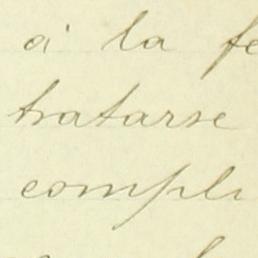 á la fe
tratarse
compli